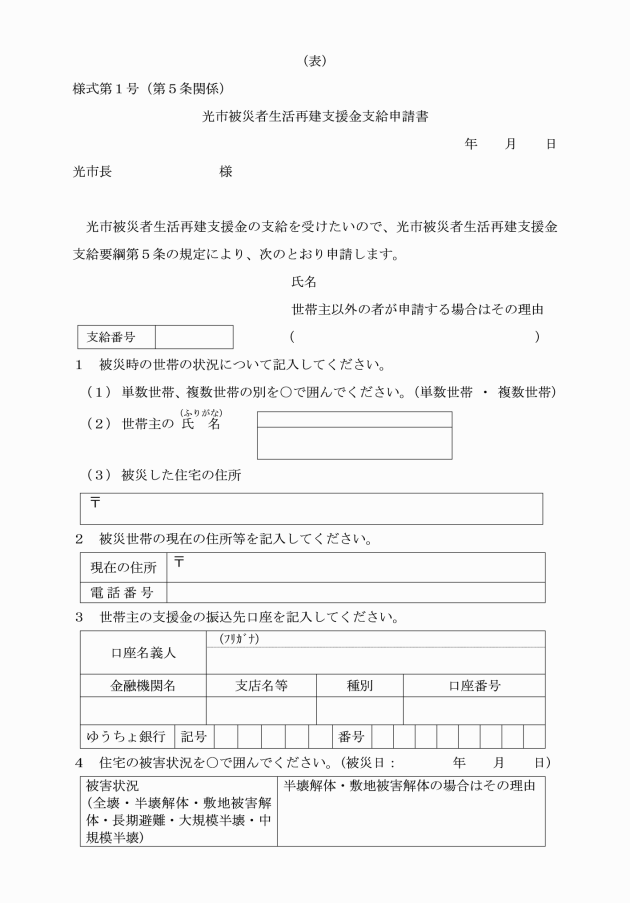 （表）
様式第１号（第５条関係）
光市被災者生活再建支援金支給申請書
年　　月　　日
光市長　　　　　　　　様
光市被災者生活再建支援金の支給を受けたいので、光市被災者生活再建支援金
支給要綱第５条の規定により、次のとおり申請します。
氏名
世帯主以外の者が申請する場合はその理由
支給番号
（　　　　　　　　　　　　　　　　　　）
１　被災時の世帯の状況について記入してください。
（１）単数世帯、複数世帯の別を○で囲んでください。（単数世帯 ・ 複数世帯）
（ふりがな）
（２）世帯主の 氏　名
（３）被災した住宅の住所
〒
２　被災世帯の現在の住所等を記入してください。
現在の住所　〒
電話番号
３　世帯主の支援金の振込先口座を記入してください。
口座名義人　（ﾌﾘｶﾞﾅ）
金融機関名　支店名等　種別　口座番号
ゆうちょ銀行　記号　番号
４　住宅の被害状況を○で囲んでください。（被災日：　　　　年　　月　　日）
被害状況
（全壊・半壊解体・敷地被害解
体・長期避難・大規模半壊・中
規模半壊）
半壊解体・敷地被害解体の場合はその理由